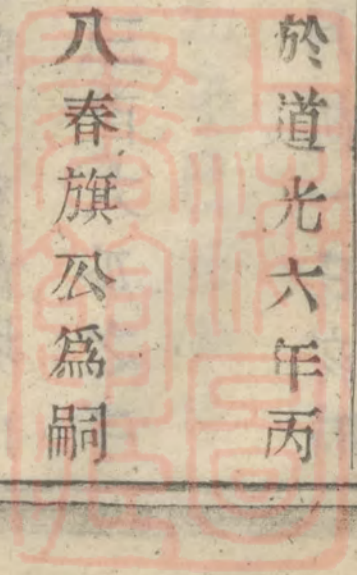 於道光六年丙
八春旗公爲嗣